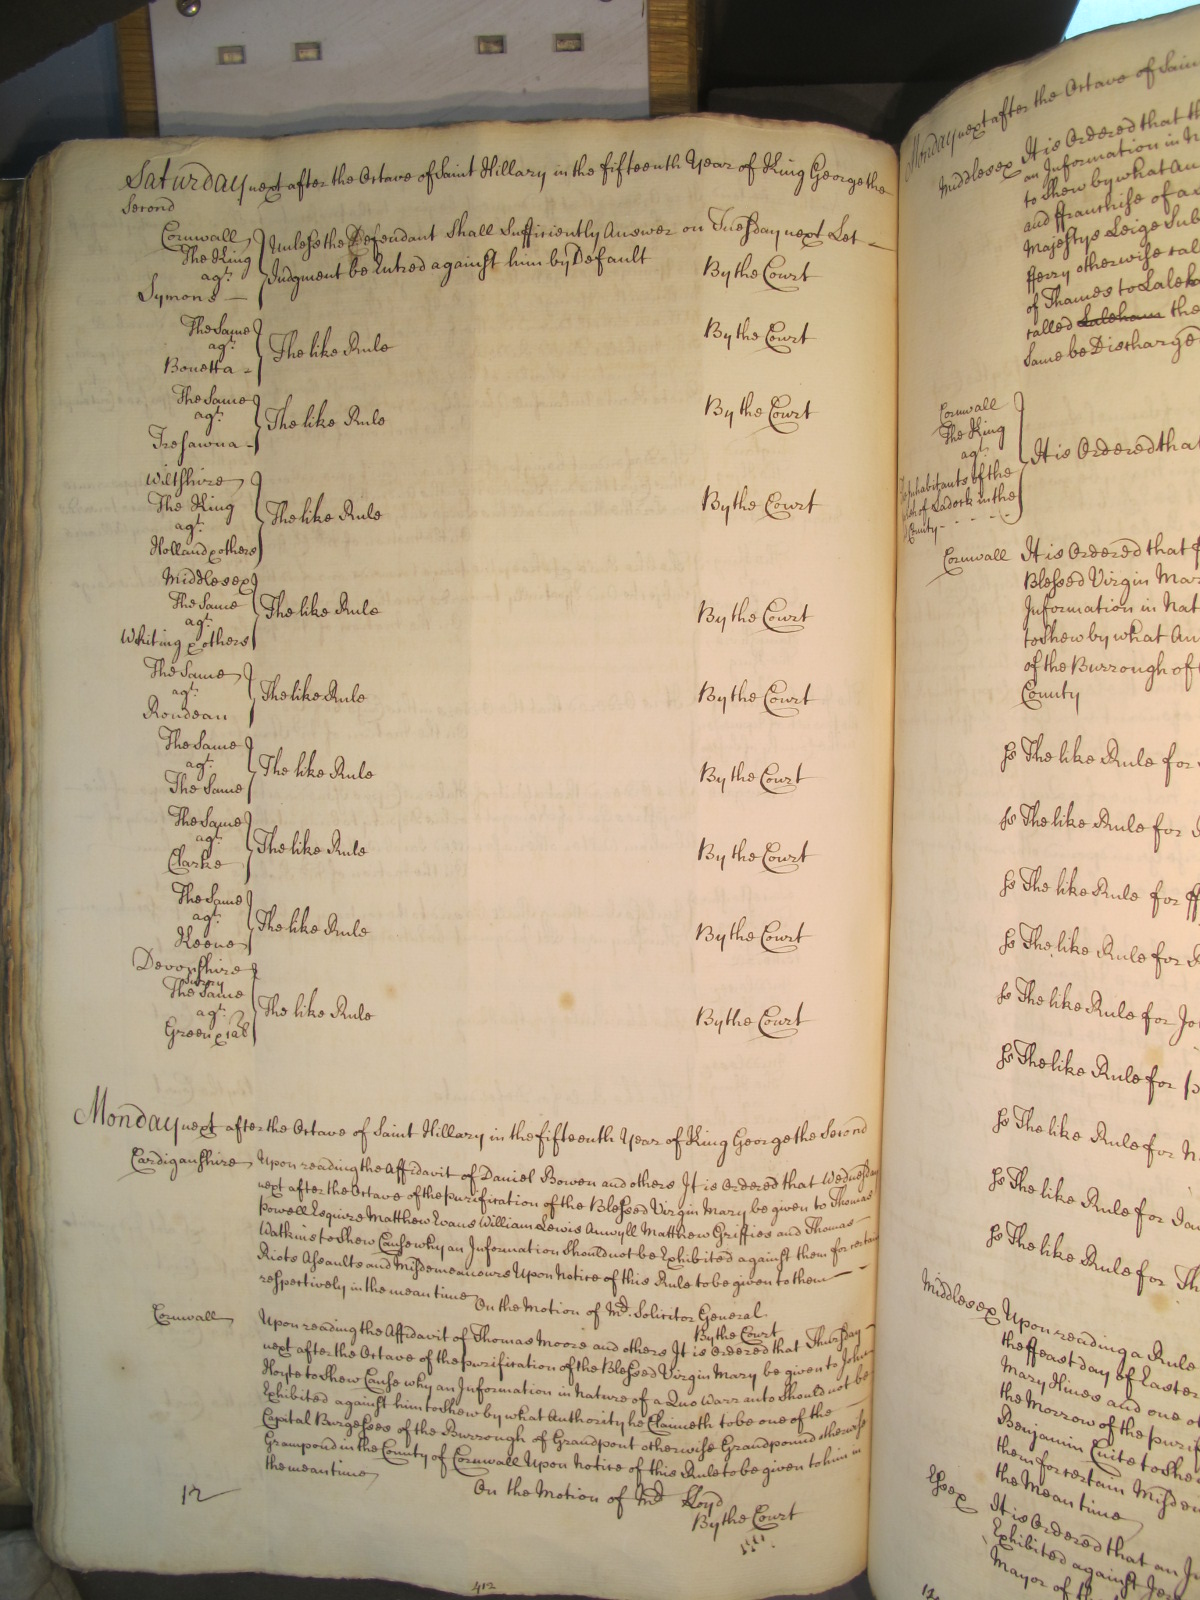 Saturday next after the Octave of Saint Hillary in the fifteenth Year of King George the
Second
Cornwall
The King
agt.
Symons
Unless the Defendant Shall Sufficiently Answer on Tuesday next Let
Judgment be Entred against him by Default
By the Court
The Same
agt.
Bonetta
The like Rule
By the Court
The Same
agt.
Tresawna
The like Rule
By the Court
Wiltshire
The King
agt.
Holland & others
The like Rule
By the Court
Middlesex
The Same
agt.
Whiting & others
The like Rule
By the Court
The Same
agt.
Rondeau
The like Rule
By the Court
The Same
agt.
The Same
The like Rule
By the Court
The Same
agt.
Clarke
The like Rule
By the Court
The Same
agt.
Keene
The like Rule
By the Court
Devonshire
Surry
The Same
agt.
Green & al
The like Rule
By the Court
Monday next after the Octave of Saint Hillary in the fifteenth Year of King George the Second
Cardiganshire
Upon reading the Affidavit of Daniel Bowen and others It is Ordered that Wednesday
next after the Octave of the purification of the Blessed Virgin Mary be given to Thomas
Powell Esquire Matthew Evans William Lewis Anwyll Matthew Griffies and Thomas
Watkins to Shew Cause why an Information Should not be Exhibited against them for certain
Riots Assaults and Misdemeanours Upon Notice of this Rule to be given to them
respectively in the mean time
On the Motion of Mr. Solicitor General
By the Court
Cornwall
Upon reading the Affidavit of Thomas Moore and others It is Ordered that Thursday
next after the Octave of the purification of the Blessed Virgin Mary be given to John
Hoyte to Shew Cause why an Information in Nature of a Quo Warranto Should not be
Exhibited against him to Shew by what Authority he Claimeth to be one of the
Capital Burgesses of the Burrough of Grandpont otherwise Grandpound otherwise
Grampond in the County of Cornwall Upon Notice of this Rule to be given to him in
the mean time
On the Motion of Mr. Lloyd
By the Court
12
412
Monday next after the Octave of Sain
Middlesex
It is Ordered that th
an Information in N
to Shew by what Au
and ffranchise of a
Majestys Leige Sub
fferry otherwise cal
of Thames to Laleh
called Laleham the
Same be Discharge
Cornwall
The King
agt.
Inhabitants of the
of Ladock in the
County
It is Ordered that
Cornwall
It is Ordered that
Blessed Virgin Mar
Information in Nat
to Shew by what Au
of the Burrough of
County
ss The like Rule for
ss The like Rule for
ss The like Rule for ff
ss The like Rule for
ss The like Rule for Jo
ss The like Rule for p
ss The like Rule for N
ss The like Rule for
ss The like Rule for Th
Middlesex
Upon reading a Rule
the ffeast day of Easter
Mary Hines and one o
the Morrow of the purif
Benjamin to Shew
them for certain Misdem
the Mean time
Essex
It is Ordered that an In
Exhibited against
Mayor of the